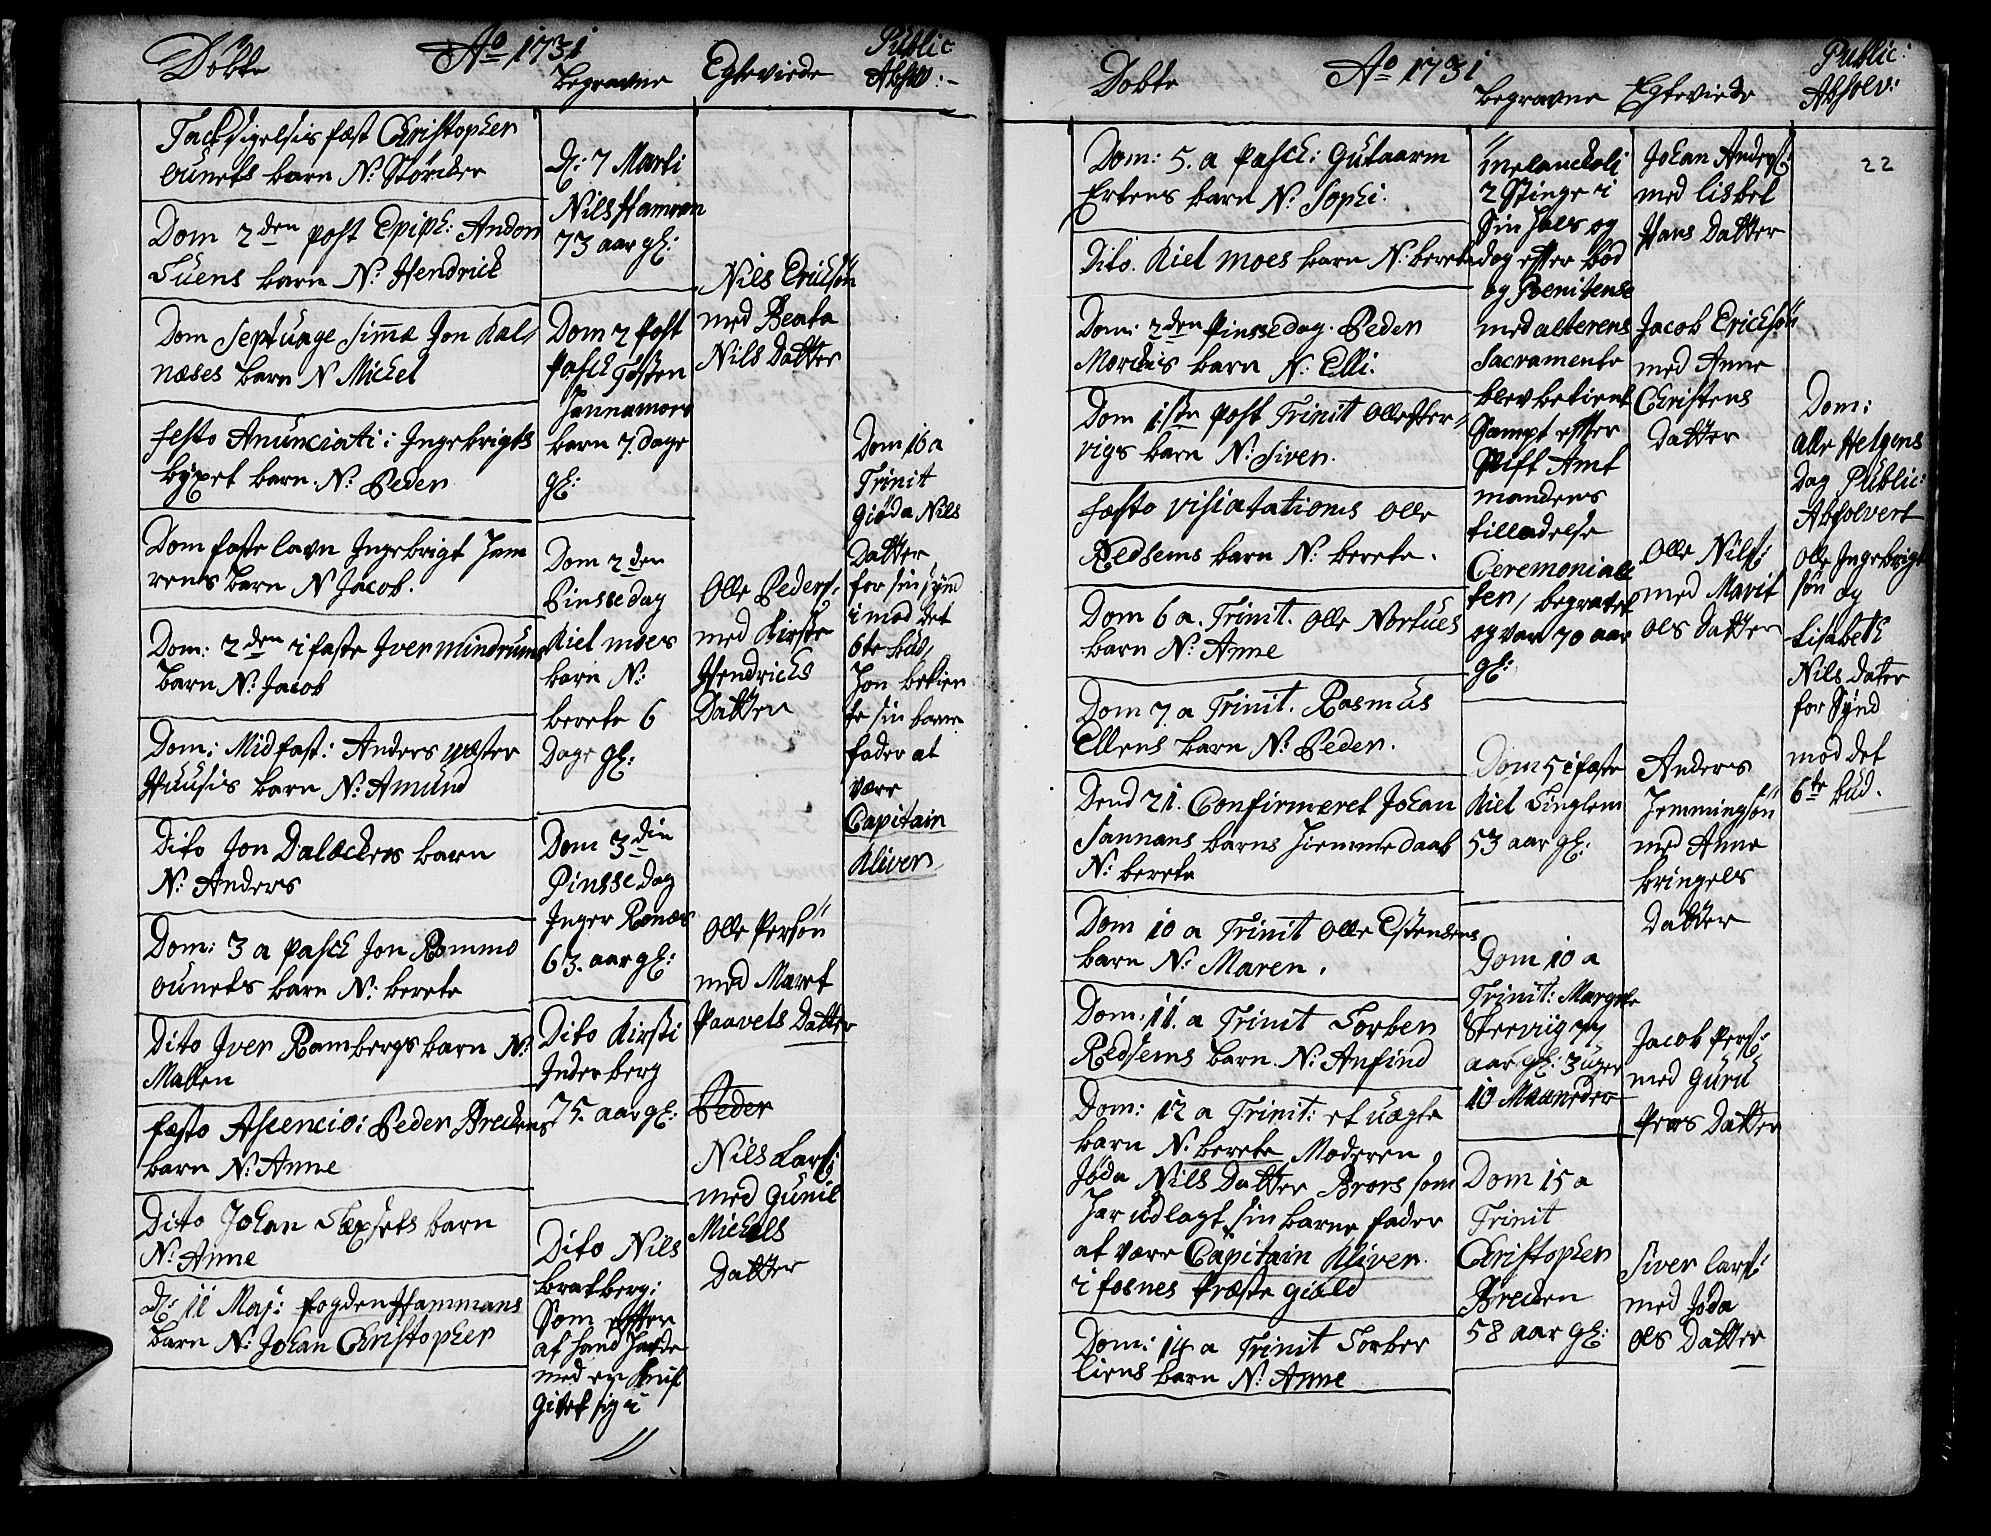 Döbte
Ao 1731
begravne
Egteviede
Public
Absolv:
Tacksigelsis fæst Christopher
ounets barn N: Störcker
Dom 2den post Epiph: Andon
Suens barn N: Hendrick
Dom Septuage Simæ Jon Kal,
næses barn N Mickel
festo Anunciati: Ingebrigts
bÿxet barn. N: Peder
Dom faste lavn Ingebrigt Jem
rens barn N Jacob.
Dom: 2den i faste Jver mindrums
barn N: Jacob
Dom: Midfast: Anders vester
Huusis barn N: Amund
Dito Jon Dalackers barn
N: Anders
Dom: 3 a pasch Jon Rommo
ounets barn N: berete
Dito Jver Rambergs barn N:
Malten
fæsto Ascencio: Peder Breckens
barn N: Anne
Dito Johan Sæxsets barn
N: Anne
D: 11 Maj: fogden Hammans
barn N: Johan Christopher
D: 7 Marti
Nils Hamron
73 aar gl:
Dom 2 post
Pasch Tosten
Hannamoes
barn 7 dage
gl:
Dom 2den
Pinssedag
Kiel moes
barn N:
berete 6
Dage gl:
Dom 3din
Pinssedag
Inger Rønæs
63. aar gl:
Dito Kirsti
Inderberg
75. aar gl:
Dito Nils
bratberg:
Som effter
at hand hafde
med en knif
givet sig i
Nils Erichsön
med Beata
Nils Datter
Olle Peders:
med Kirste
Hendrichs
Datter
Olle Persön
med Maret
Paavels Datter
Peder
Nils Lars:
med Gunil
Michels
Datter
Dom 16 a
Trinit
Giöda Nils
Datter
for sin sÿnd
imod det
6te bud,
Jon bekien
te sin barne
fader at
være
Capitain
Kliver
Dobte
Ao 1731
begravne
Egteviede
Public:
Absolv:
22
Dom: 5. a Pasch: Gutaarm
Ertens barn N: Sophi.
Dito. Kiel moes barn N: berete
Dom: 2den Pinssedag. Peder
Mordus barn N: Elli.
Dom 1ste post Trinit Olle ster,
vigs barn N: Siven.
Fæsto visiatationis Olle
Redsems barn N: berete.
Dom 6 a. Trinit. Olle Nortues
barn N: Anne
Dom 7. a Trinit. Rasmus
Ellens barn N: Peder.
Dend 21. Confirmeret Johan
Sannans barns Hiemmedaab
N: berete
Dom 10 a Trinit Olle Estensens
barn N: Maren.
Dom: 11. a Trinit Torber
Redsems barn N: Anfind
Dom: 12 a Trinit: et uægte
barn N: berete Moderen
Jöda Nils Datter Brors som
har udlagt sin barne fader
at være Capitain Kliver
i fosnes Præste giæld
Dom: 14 a Trinit Torber
Liens barn N: Anne
melancholi
2 Stinge i
Sin Hals og
dog effter bod
og Poenitense
med alterens
Sacramente
blev betient
Sampt effter
Stift Amt
mandens
tilladelse
Ceremonialit
ter, begravet
og var 70 aar
gl:
Dom 5 i faste
Kiel Singlem
53 aar gl:
Dom 10 a
Trinit: Margrete
Stervig 77
aar gl: 3 uger
10 Maaneder
Dom 15 a
Trinit
Christopher
Brecken
58 aar gl:
Johan Anders:
med Lisbet
Hans Datter
Jacob Ericksön
med Anne
Christens
Datter
Olle Nils:
med Marit
Ols Datter
Anders
Hemmingsön
med Anne
bringels
Datter
Jacob Pers:
med Guru
Pers Datter
Siver Lars:
med Joda
Ols Datter
Dom:
Alle Helgens
Dag Public:
Absolvert
Olle Ingebrigt
sön og
Lisabeth
Nils Dater
for Sÿnd
mod det
6te bud.